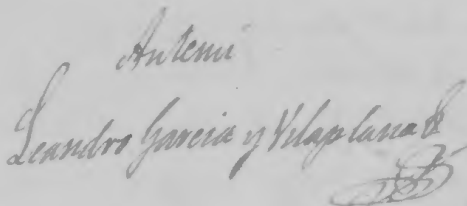 Antemi
Leandro Garcia y Vilaplana